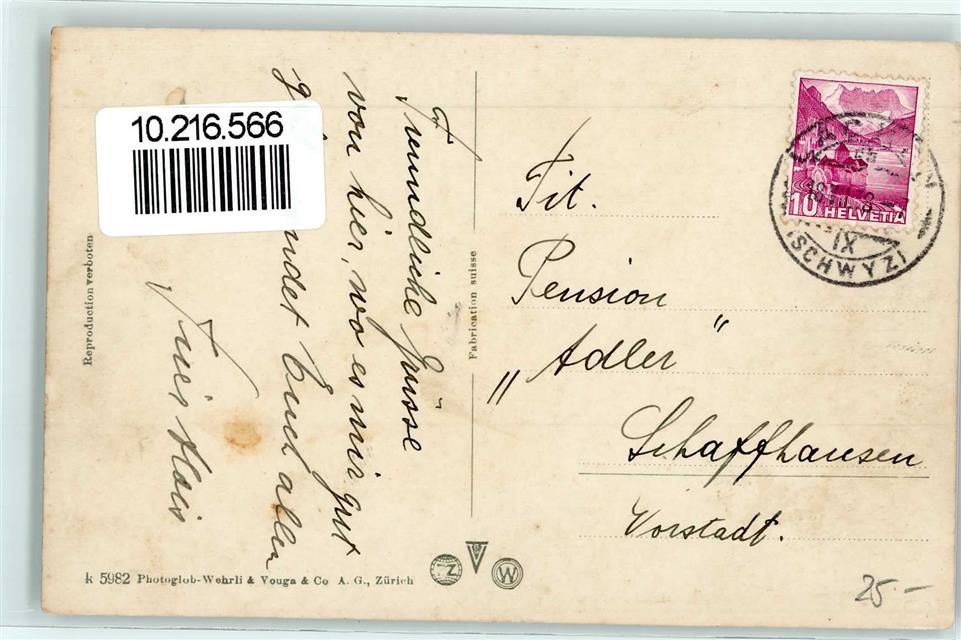 10.216.566
Freundliche Grüsse
von hier, wo es mir gut
Euch allen
Tit.
Pension
„Adler"
Schaffhausen
Vorstadt.
10 HELVETIA
IX
(SCHWYZ)
Reproduction verboten
Fabrication suisse
k 5982 Photoglob-Wehrli & Vouga & Co A. G., Zürich
Z
W
25.-